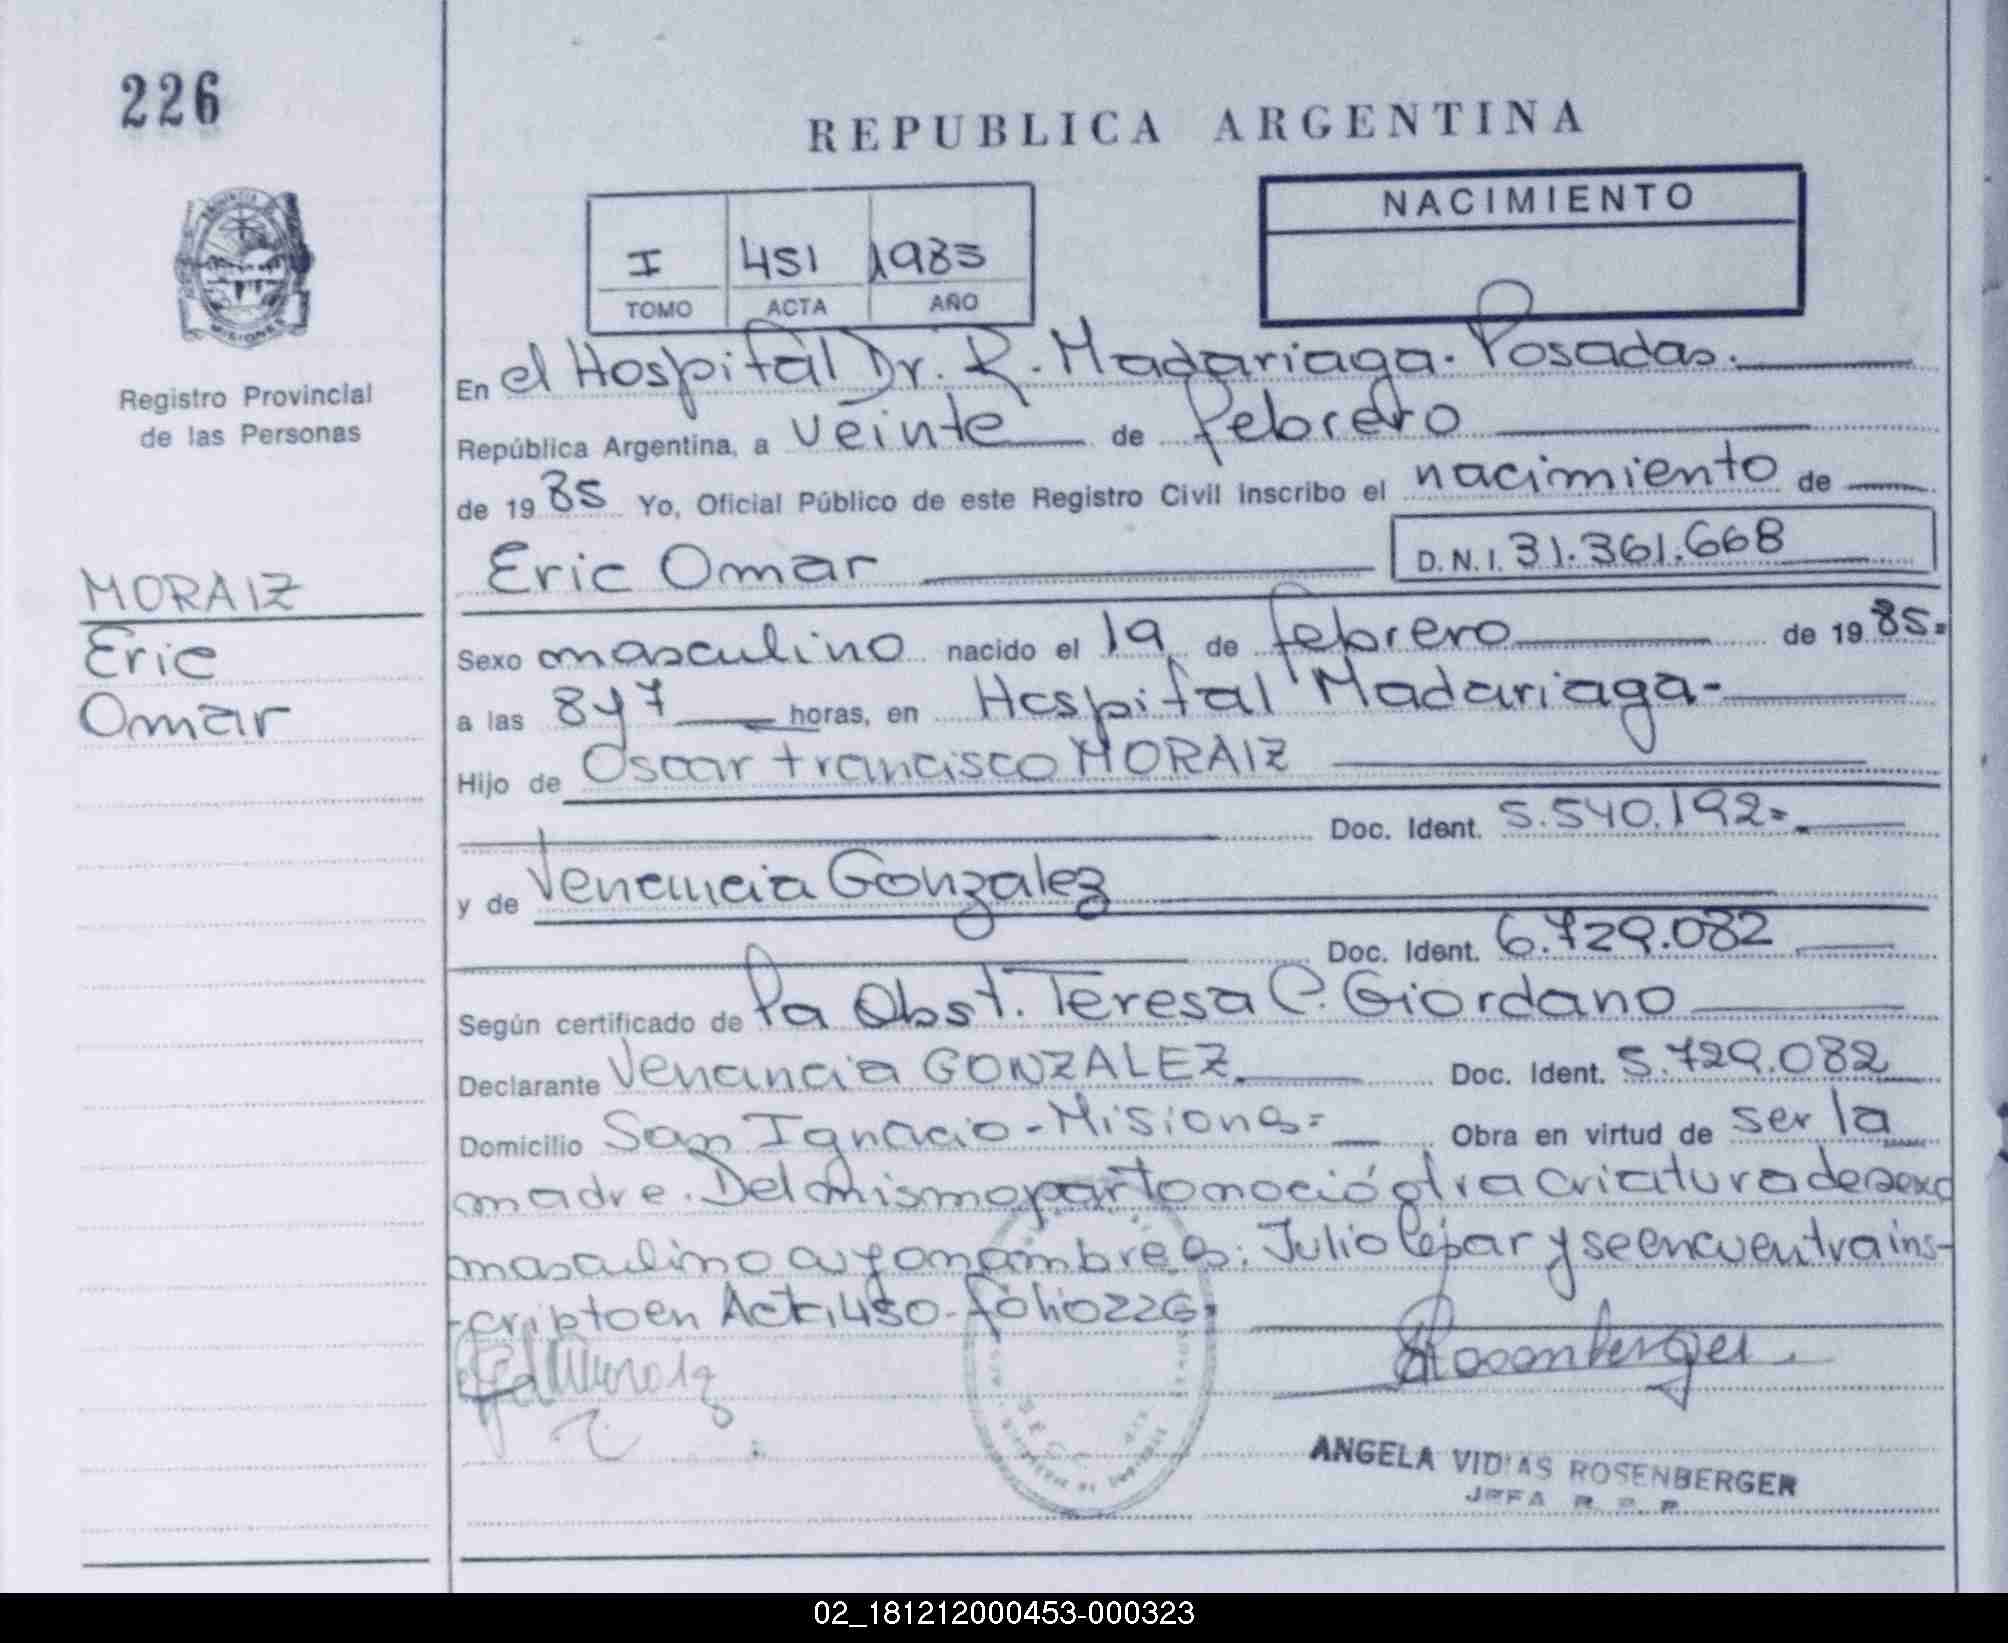 226
REPUBLICA ARGENTINA
NACIMIENTO
I 451 1985
TOMO ACTA AÑO
Registro Provincial
de las Personas
MORAIZ
Eric
Omar
En el Hospital Dr. R. Madariaga. Posadas.
República Argentina, a veinte de febrero
de 1985 Yo, Oficial Público de este Registro Civil inscribo el nacimiento de
Eric Omar D.N.I. 31.361.668
Sexo masculino nacido el 19 de febrero de 1985=
a las 8 y 7 horas, en Hospital Madariaga-
Hijo de Oscar Francisco MORAIZ
Doc. Ident. 5.540.192=
y de Venancia Gonzalez
Doc. Ident. 6.729.082
Según certificado de la Obst. Teresa C. Giordano
Declarante Venancia GONZALEZ. Doc. Ident. 5.729.082
Domicilio San Ignacio - Misiones= Obra en virtud de ser la
madre. Del mismo parto nació otra criatura de sexo
masculino cuyo nombre es: Julio César y se encuentra ins-
-cripto en Acta 450 - folio 226.
Rosenberger
ANGELA VIDIAS ROSENBERGER
JEFA R. P. P.
02_181212000453-000323